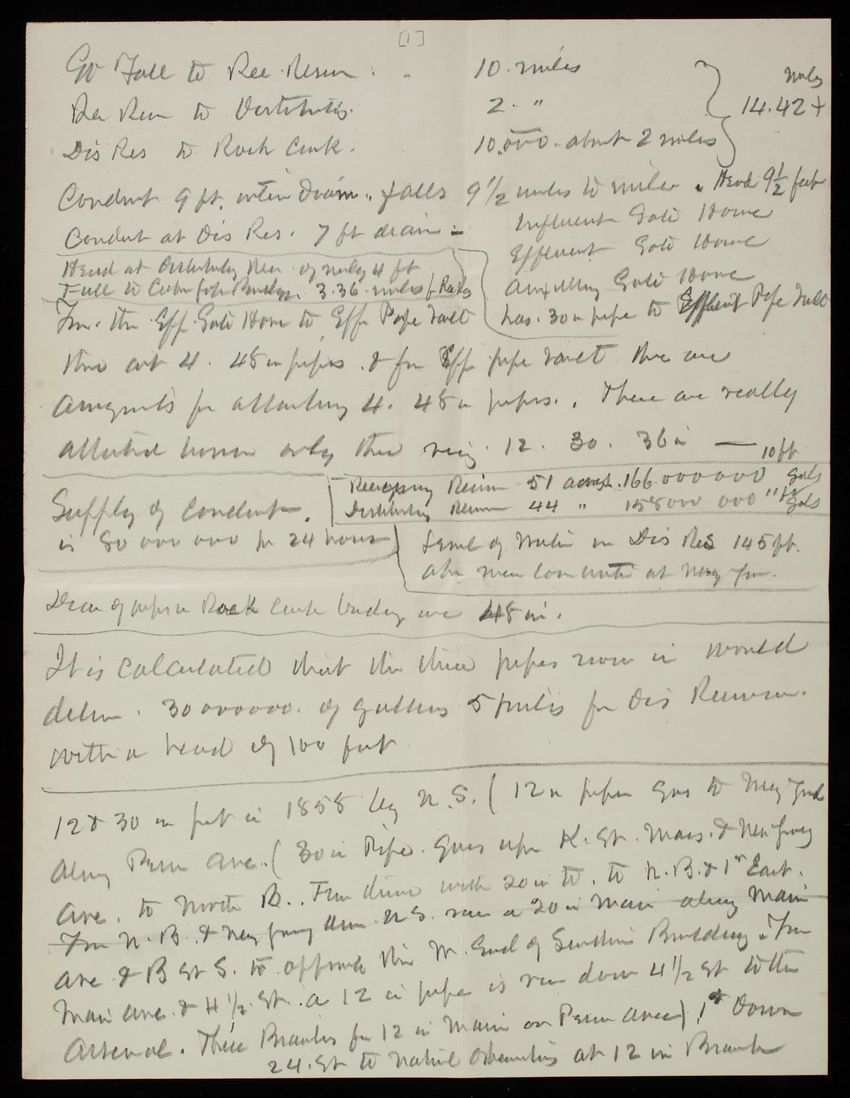 [1]
Gt Fall to Rec. Reser. 10. miles
Rec Resr to Distributg. 2. "
Dis Res to Rock Creek. 10,000. about 2 miles
miles 14.42+
Conduit 9 ft. inter Diam. falls 9 1/2 to mile. Head 9 1/2 feet
Conduit at Dis Res. 7 ft diam =
Influent Gate House
Effluent Gate House
Auxillary Gate House
has. 30 in pipe to Effluent Pipe Vault
Head at Distributing Resr. of only 4 ft
Fall to 3.36. miles
Frm. the Eff. Gate House to Eff Pipe Vault
there are 4. 48 in pipes. & frm Eff pipe vault there are
for attaching 4. 48 in pipes. There are really
attached however only three viz. 12. 30. 36 in — 10 ft
Supply of Conduit.
is 80 000 000 per 24 hours
Receiving Reserv. 51 acres. 166.000000 Gals
Distributing Reserv 44 " 158000 000 " Gals
Level of Water in Dis Res 145 ft.
abv mean low water at Navy Yrd.
Diam of pipes in Rock Creek bridge are 48 in.
It is calculated that the three pipes now in would
deliver. 30000000. of gallons 5 miles frm Dis Reservoir.
with a head of 100 feet.
12 & 30 in put in 1858 by U.S. (12 in pipe goes to Navy Yard
along Penn Ave. (30 in Pipe. Goes up K. St. Mass. & New Jersey
Ave. to North B. From there with 20 in to. to N. B. & 1st East.
From N. B. & New Jersey Ave. U.S. run a 20 in Main along Main
Ave & B St S. to opposite the W. End of Smithsn Building. From
Main Ave. & 4 1/2 St. a 12 in pipe is run down 4 1/2 St to the
Arsenal. Three Branches frm 12 in Main on Penn Ave) 1st Down
24. St to Natnl Observatory at 12 in Branch